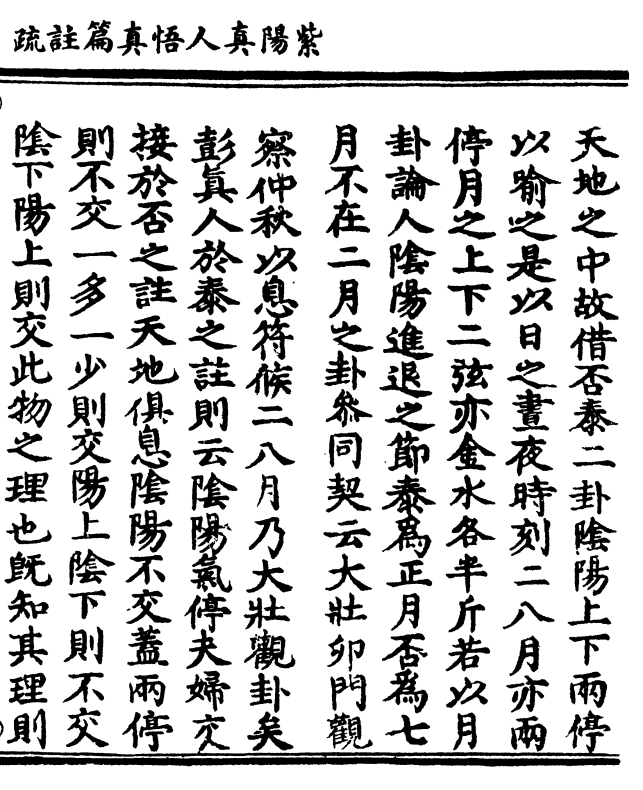 紫陽真人悟真篇註疏
天地之中故借否泰二卦陰陽上下兩停
以喻之是以日之晝夜時刻二八月亦兩
停月之上下二弦亦金水各半斤若以月
卦論人陰陽進退之節泰為正月否為七
月不在二月之卦叅同契云大壯卯門觀
察仲秋以息符候二八月乃大壯觀卦矣
彭真人於泰之註則云陰陽氣停夫婦交
接於否之註天地俱息陰陽不交蓋兩停
則不交一多一少則交陽上陰下則不交
陰下陽上則交此物之理也既知其理則